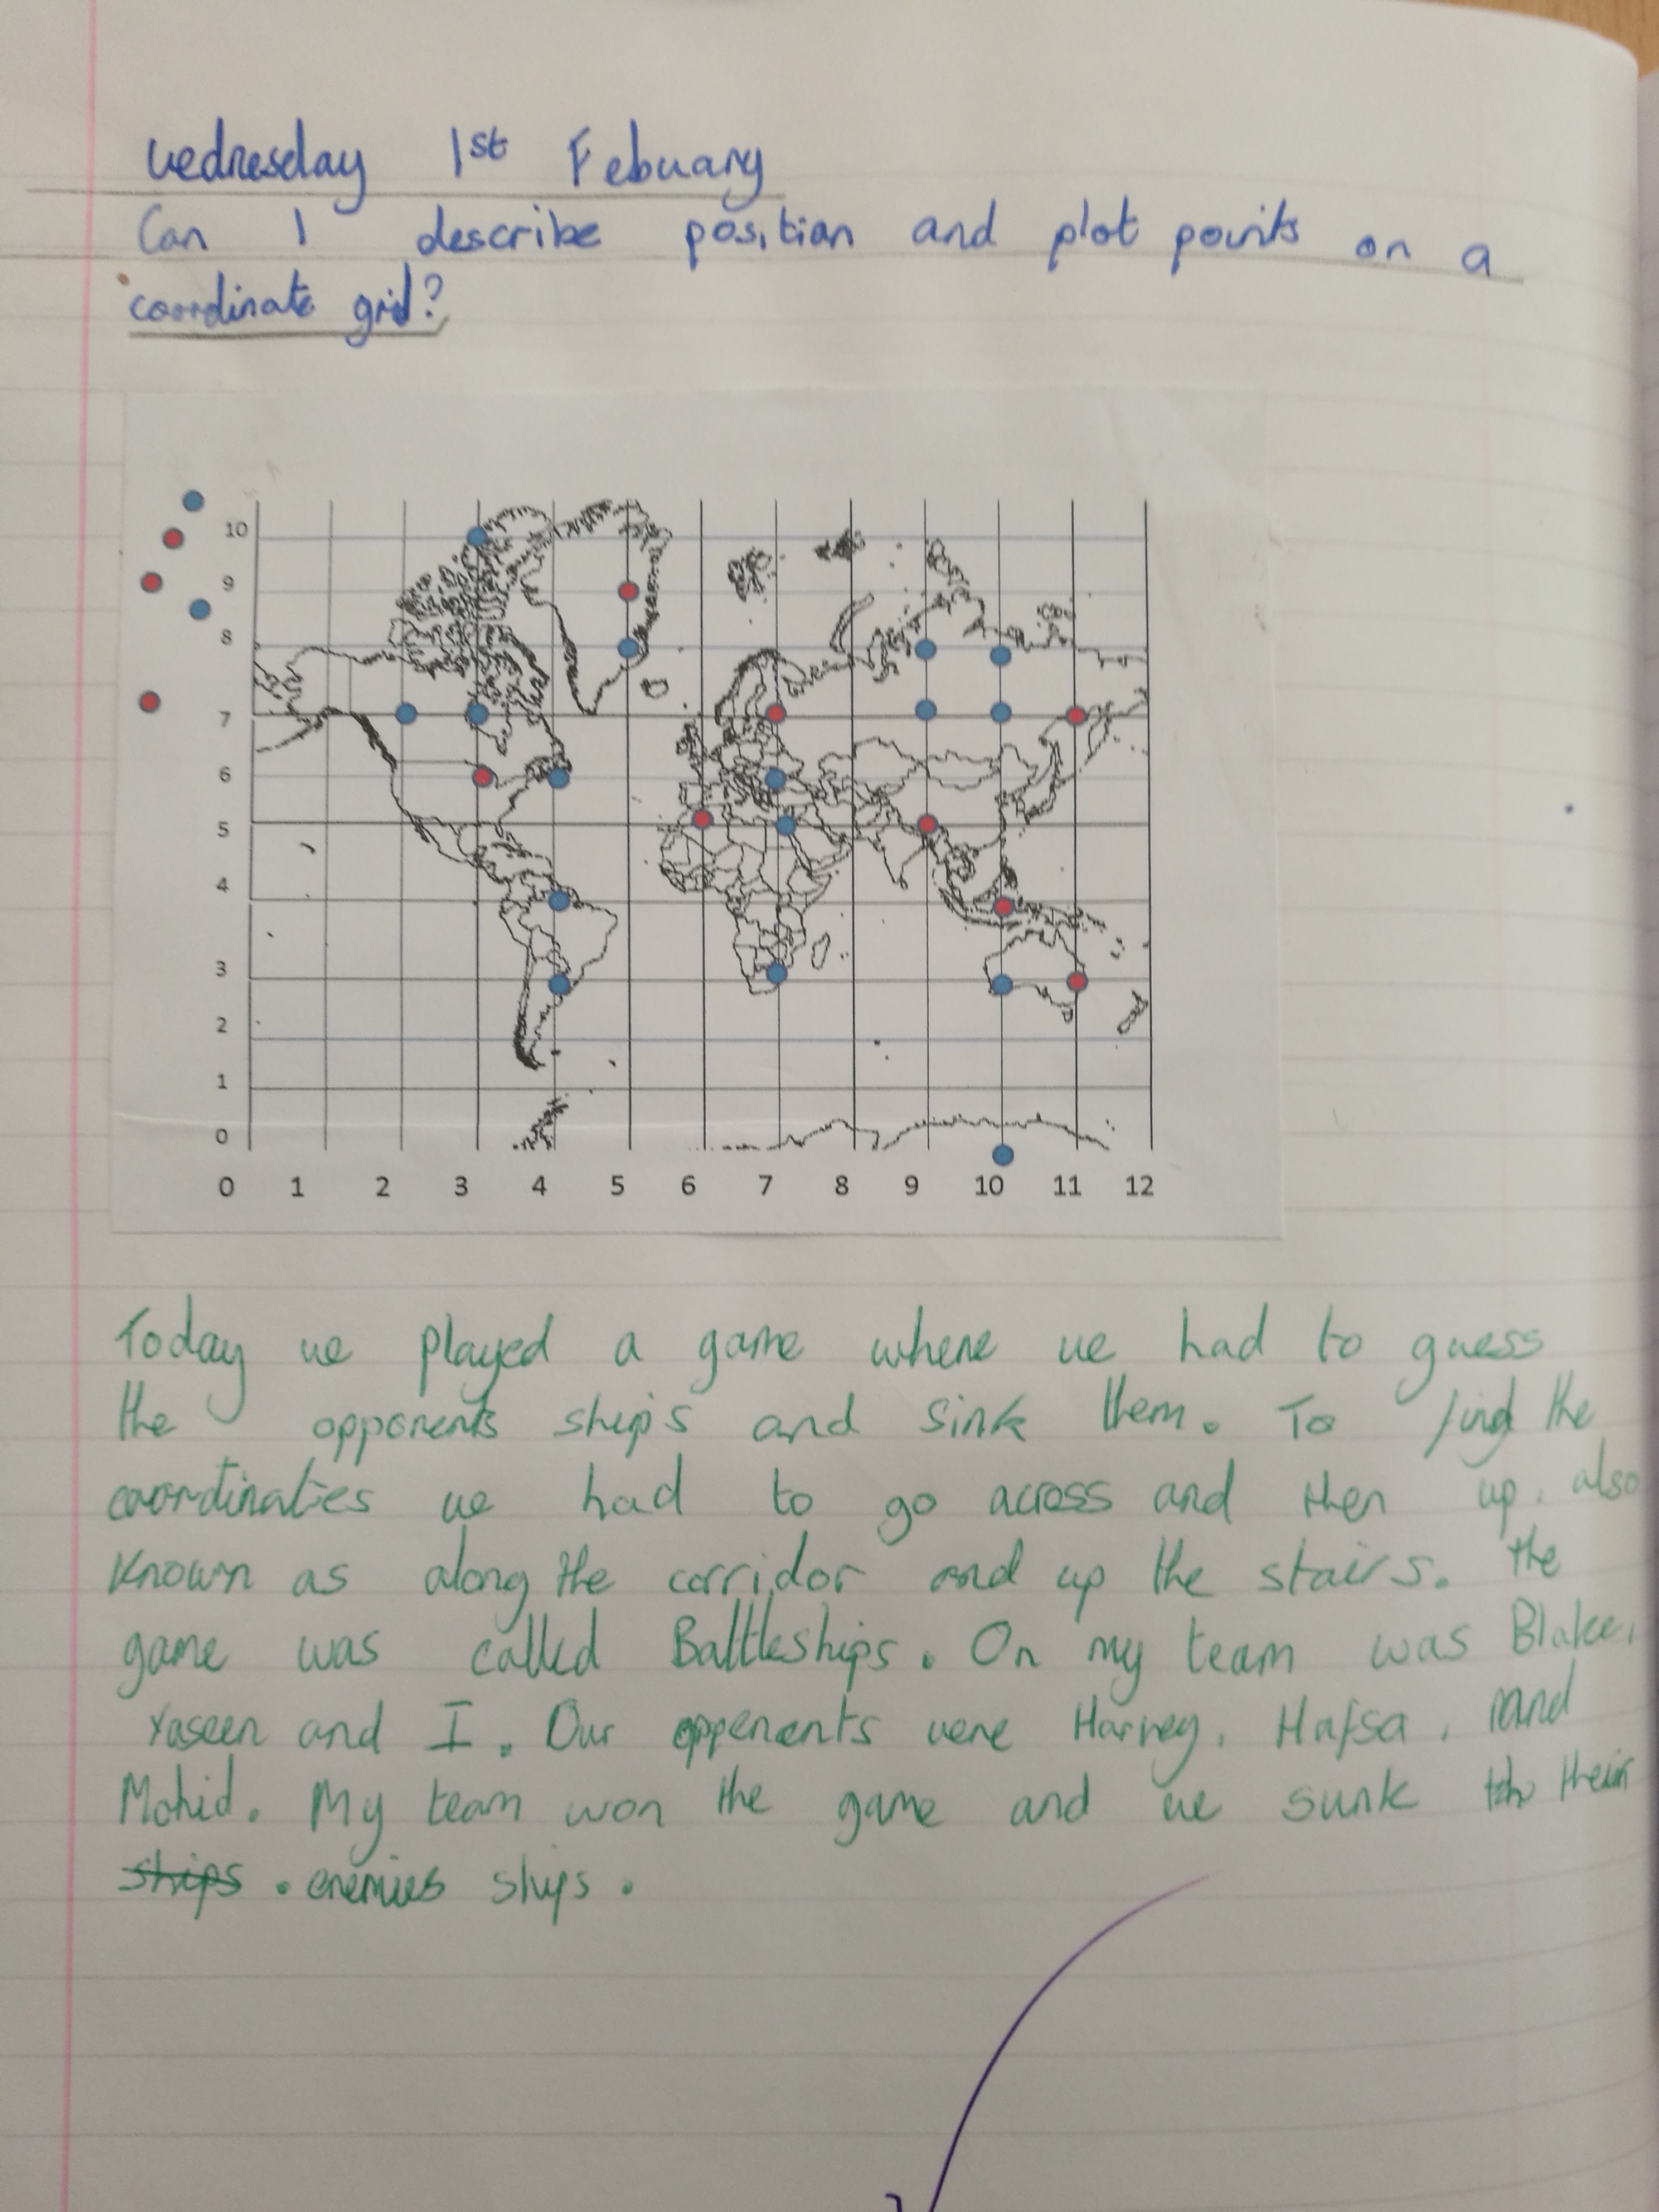 Wednesday 1st Febuary
Can I describe position and plot points on a
coordinate grid?
10
9
8
7
6
5
4
3
2
1
0
0 1 2 3 4 5 6 7 8 9 10 11 12
Today we played a game where we had to guess
the opponents ships and sink them. To find the
coordinaties we had to go across and then up, also
known as along the corridor and up the stairs. the
game was called Battleships. On my team was Blake,
Yaseen and I. Our oppenents were Harvey, Hafsa, and
Mohid. My team won the game and we sunk their
ships. enemies ships.